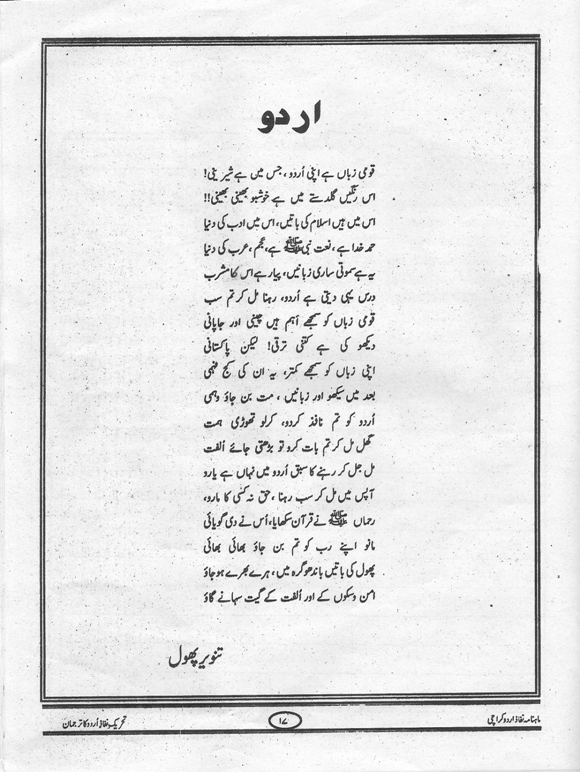 اردو
قومی زباں ہے اپنی اُردو، جس میں ہے شیرینی!
اس رنگیں گلدستے میں ہے خوشبو بھینی بھینی!!
اس میں ہیں اسلام کی باتیں، اس میں ادب کی دنیا
حمد خدا ہے، نعت نبی ﷺ ہے، عجم، عرب کی دنیا
یہ ہے سموتی ساری زبانیں، پیار ہے اس کا مشرب
درس یہی دیتی ہے اُردو، رہنا مل کر تم سب
قومی زباں کو سمجھے اہم ہیں چینی اور جاپانی
دیکھو کی ہے کتنی ترقی! لیکن پاکستانی
اپنی زباں کو سمجھے کمتر، یہ ان کی کج فہمی
بعد میں سیکھو اور زبانیں، مت بن جاؤ وہمی
اُردو کو تم نافذ کردو، کرلو تھوڑی ہمت
گھل مل کر تم بات کرو تو بڑھتی جائے اُلفت
مل جل کر رہنے کا سبق اُردو میں نہاں ہے یارو
آپس میں مل کر سب رہنا، حق نہ کسی کا مارو،
رحماں ﷺ نے قرآن سکھایا، اُس نے دی گویائی
مانو اپنے رب کو تم بن جاؤ بھائی بھائی
پھول کی باتیں باندھو گرہ میں، ہرے بھرے ہوجاؤ
امن و سکوں کے اور اُلفت کے گیت سہانے گاؤ
تنویر پھول
ماہنامہ نفاذ اردو کراچی
۱۷
تحریک نفاذ اُردو کا ترجمان